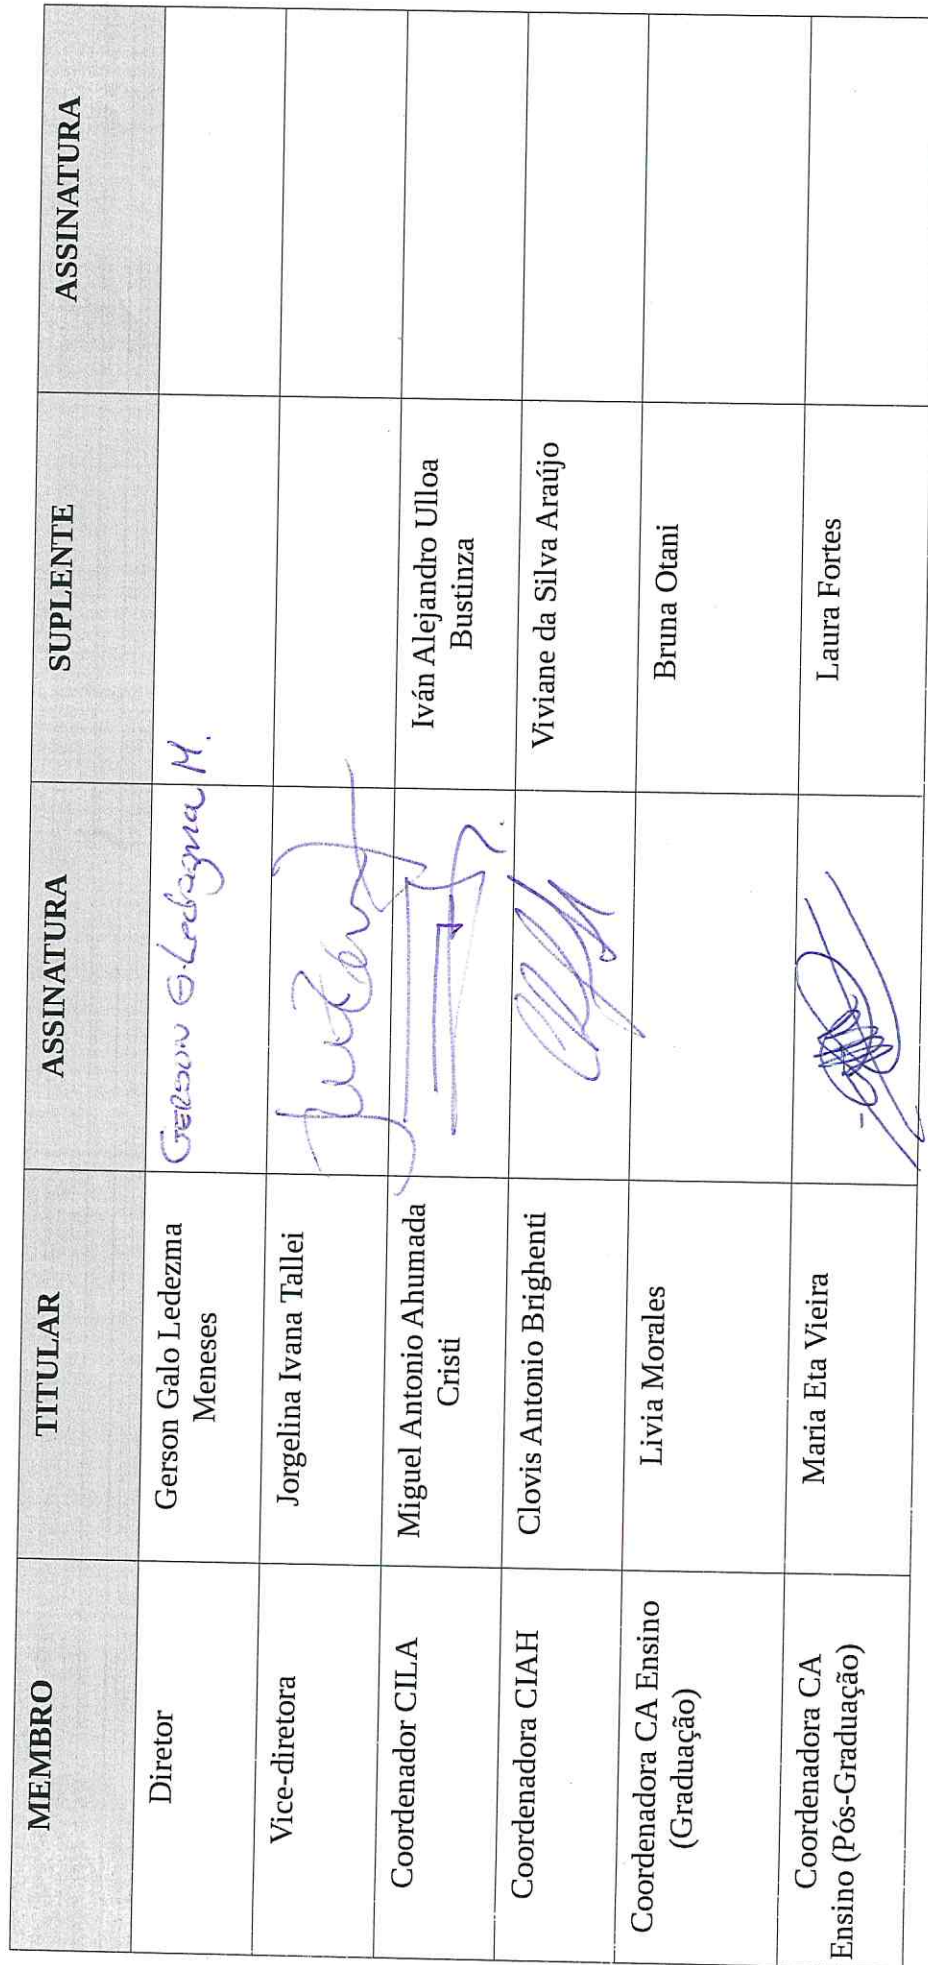 MEMBRO TITULAR ASSINATURA SUPLENTE ASSINATURA
Diretor Gerson Galo Ledezma
Meneses GERSON G. Ledezma M.
Vice-diretora Jorgelina Ivana Tallei
Coordenador CILA Miguel Antonio Ahumada
Cristi Iván Alejandro Ulloa
Bustinza
Coordenadora CIAH Clovis Antonio Brighenti Viviane da Silva Araújo
Coordenadora CA Ensino
(Graduação) Livia Morales Bruna Otani
Coordenadora CA
Ensino (Pós-Graduação) Maria Eta Vieira Laura Fortes